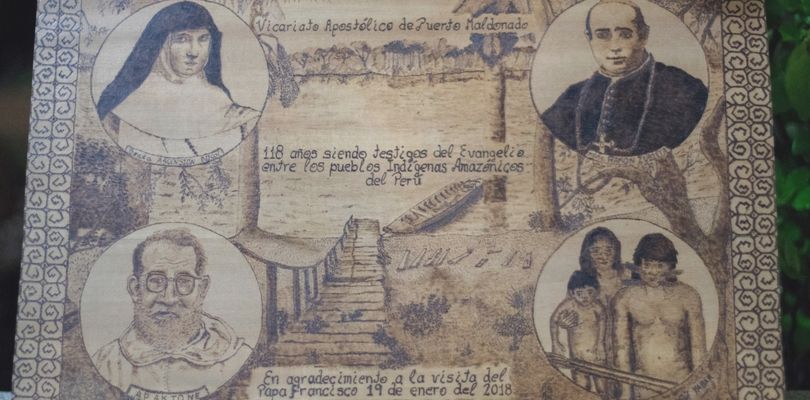 Vicariato Apostólico de Puerto Maldonado
118 años siendo testigos del Evangelio
entre los pueblos Indígenas Amazónicos
del Perú
APAKTONE
En agradecimiento a la visita del
Papa Francisco 19 de enero del 2018